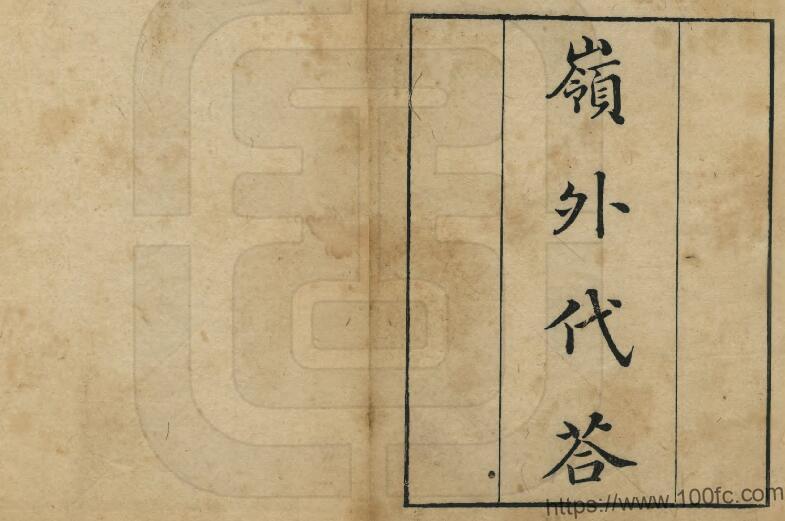 嶺外代荅
https://www.100fc.com